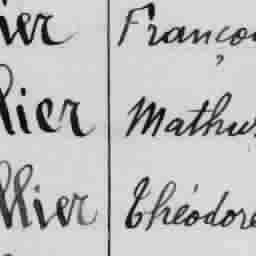 ier Françoi
lier Mathur
llier Théodore